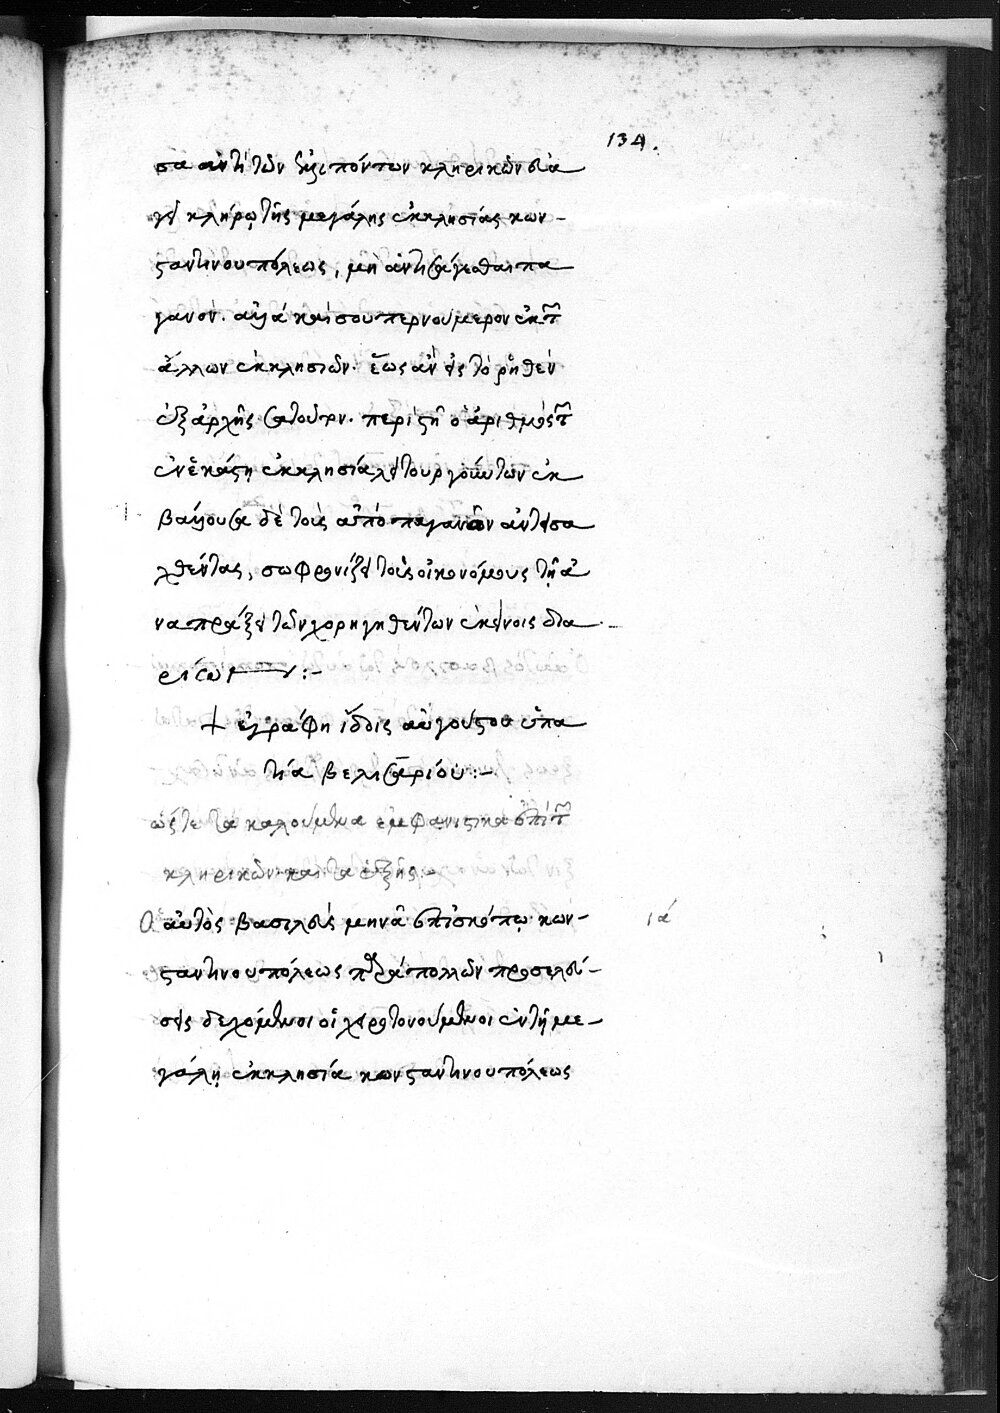 134.
σα ἀντὶ τῶν ἐκλιπόντων κληρικῶν διὰ
γεῖ κλήρῳ τῆς μεγάλης ἐκκλησίας κων-
σταντινουπόλεως, μὴ ἀντισάγεσθαι πα
γανόν. ἀλλὰ καὶ σουπερνούμερον ἐκ τῶν
ἄλλων ἐκκλησιῶν. ἕως ἂν εἰς τὸ ῥηθὲν
ἐξ ἀρχῆς στατοῦτον. περιστῇ ὁ ἀριθμὸς τῶν
ἐν ἑκάστῃ ἐκκλησίᾳ λειτουργούντων ἐκ
βάλλουσα δὲ τοὺς ἀπὸ παγανῶν ἀντεισα
χθέντας, σωφρονίζει τοὺς οἰκονόμους τῇ ἀ
ναπράξει τῶν χορηγηθέντων ἐκείνοις δια
ρίων :-
+ ἐγράφη ἴδδις αὐγούστου ὑπα
τεία βελισαρίου :-
ὥστε τὰ καλούμενα ἐμφανιστικὰ ἐπὶ τῶν
κληρικῶν καὶ τὰ ἑξῆς :-
Ὁ αὐτὸς βασιλεὺς μηνᾶ ἐπισκόπῳ κων- ια´
σταντινουπόλεως παρὰ πολλῶν προσελεύ-
σεις δεχόμενοι οἱ χειροτονούμενοι ἐν τῇ με-
γάλῃ ἐκκλησίᾳ κωνσταντινουπόλεως